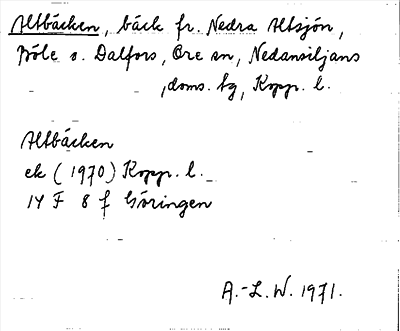 Altbäcken, bäck fr. Nedra Altsjön,
Böle s. Dalfors, Ore sn, Nedansiljans
,doms. tg, Kopp. l.
Altbäcken
ek (1970) Kopp. l.
14 F 8 f Göringen
A.-L. W. 1971.